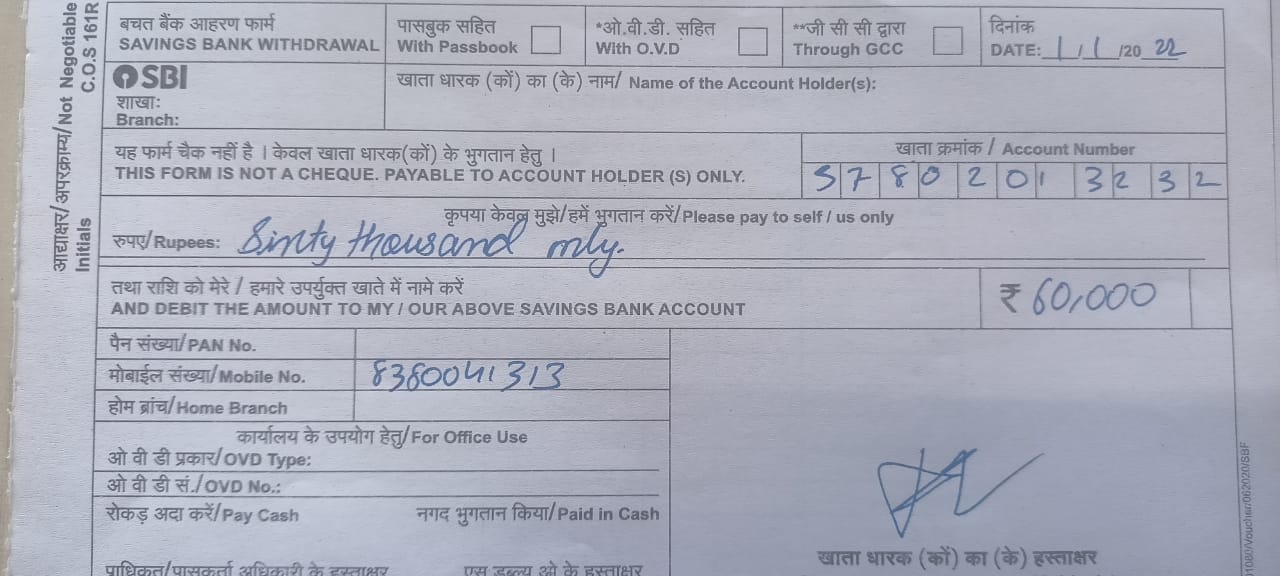 बचत बैंक आहरण फार्म
SAVINGS BANK WITHDRAWAL
पासबुक सहित
With Passbook
*ओ.वी.डी. सहित
With O.V.D
**जी सी सी द्वारा
Through GCC
दिनांक
DATE: 1/1/2022
SBI
शाखाः
Branch:
खाता धारक (कों) का (के) नाम/ Name of the Account Holder(s):
यह फार्म चैक नहीं है । केवल खाता धारक(कों) के भुगतान हेतु ।
THIS FORM IS NOT A CHEQUE. PAYABLE TO ACCOUNT HOLDER (S) ONLY.
खाता क्रमांक / Account Number
57802013232
कृपया केवल मुझे/हमें भुगतान करें/Please pay to self / us only
रुपए/Rupees: Sixty thousand only.
तथा राशि को मेरे / हमारे उपर्युक्त खाते में नामे करें
AND DEBIT THE AMOUNT TO MY / OUR ABOVE SAVINGS BANK ACCOUNT
₹ 60,000
पैन संख्या/PAN No.
मोबाईल संख्या/Mobile No. 8380041313
होम ब्रांच/Home Branch
कार्यालय के उपयोग हेतु/For Office Use
ओ वी डी प्रकार/OVD Type:
ओ वी डी सं./OVD No.:
रोकड़ अदा करें/Pay Cash
नगद भुगतान किया/Paid in Cash
खाता धारक (कों) का (के) हस्ताक्षर
प्राधिकृत/पासकर्ता अधिकारी के हस्ताक्षर
एस डब्ल्यू ओ के हस्ताक्षर
आद्याक्षर/अपरक्राम्य/Not Negotiable
Initials
C.O.S 161R
1080/Voucher/062020/SBF